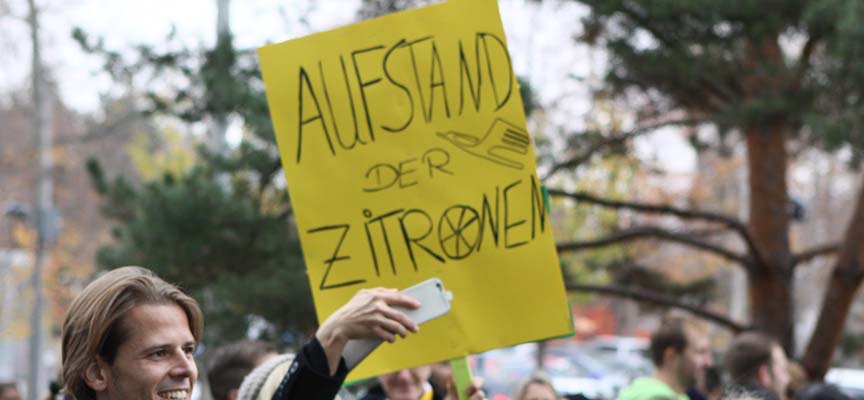 AUFSTAND
DER
ZITRONEN